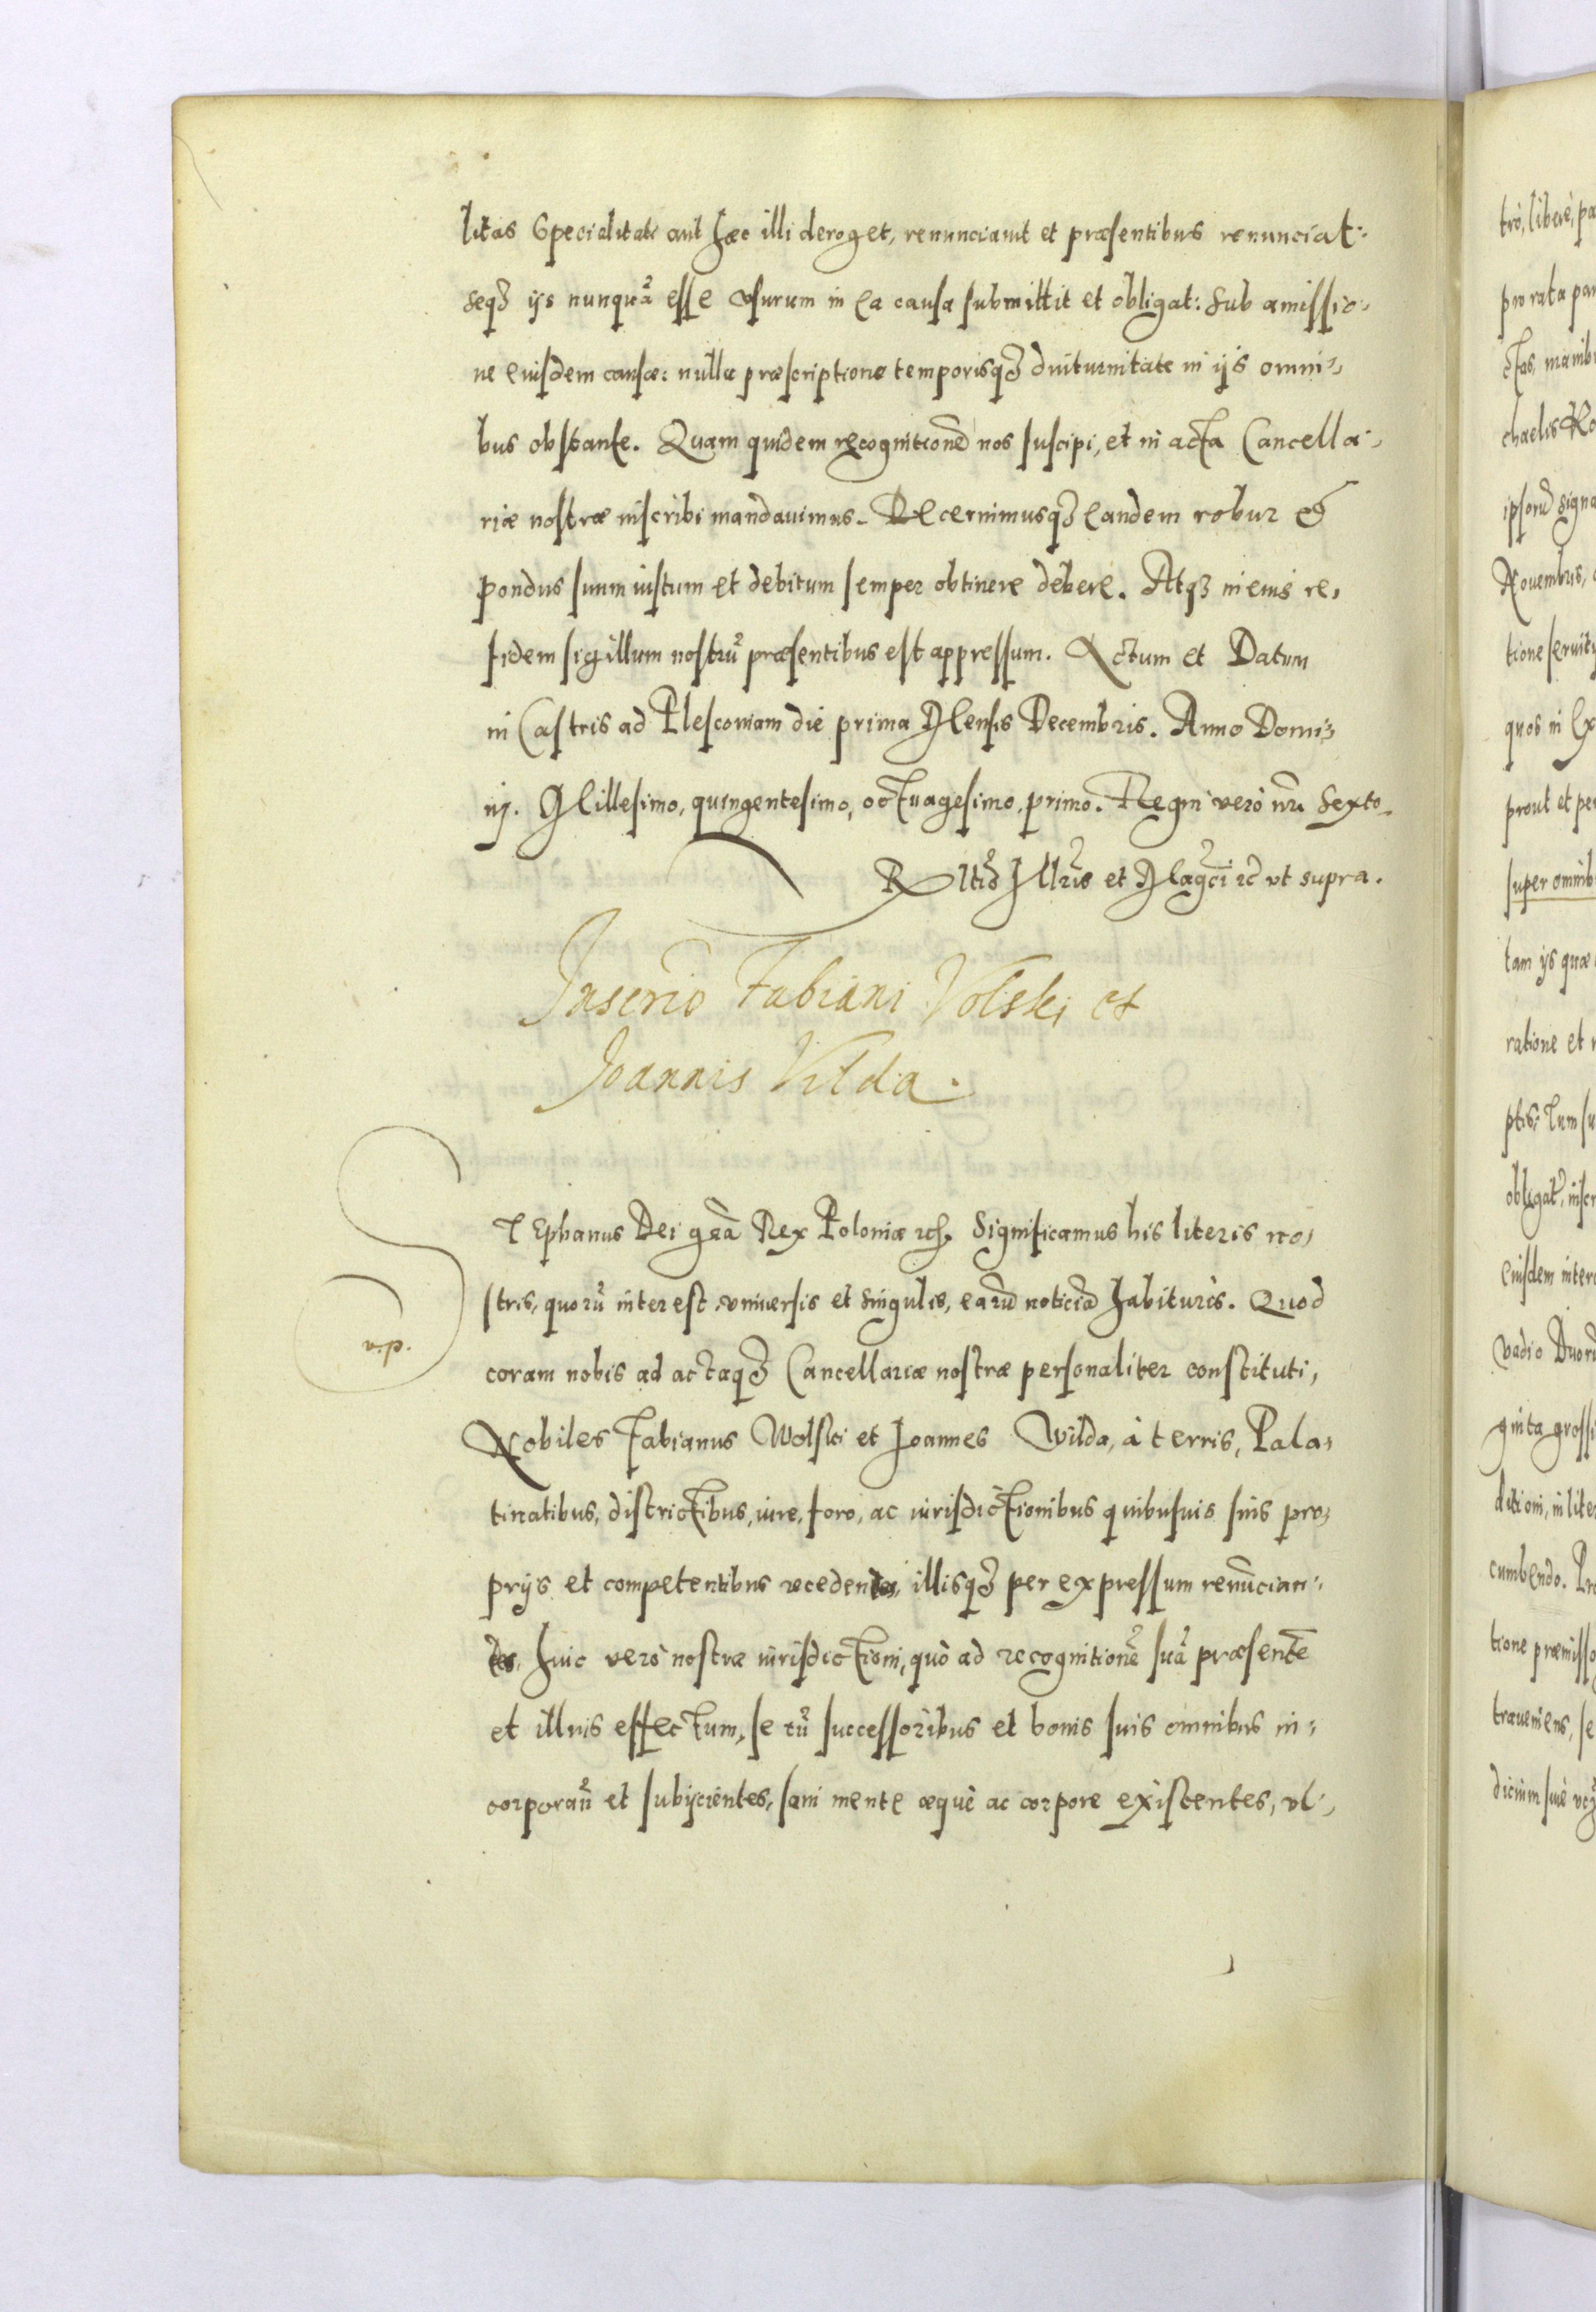 litas Specialitati aut hæc illi deroget, renunciauit et præsentibus renunciat:
seqȝ ijs nunquã esse vsurum in ea causa submittit et obligat: sub amissio-
ne eiusdem causæ: nulla præscriptione temporisqȝ diuturnitate in ijs omni-
bus obstante. Quam quidem recognitionē nos suscipi, et in acta Cancella-
riæ nostræ inscribi mandauimus. Decernimusqȝ eandem robur &
pondus suum iustum et debitum semper obtinere debere. Atqȝ in eius re,
fidem sigillum nostrũ præsentibus est appressum. Actum et Datum
in Castris ad Plescouiam die prima Mensis Decembris. Anno Domi-
nj. Millesimo, quingentesimo, octuagesimo, primo. Regni verò nrĩ Sexto.
Rltio Illris et Magci rc vt supra.
Inscrio Fabiani Volski et
Joannis Vilda.
STephanus Dei grã Rex Poloniæ rc. Significamus his literis no-
stris, quorũ interest, vniuersis et singulis, earũ noticiã habituris. Quod
coram nobis ad actaqȝ Cancellariæ nostræ personaliter constituti,
Nobiles Fabianus Wolski et Joannes Wilda, à terris, Pala-
tinatibus, districtibus, iure, foro, ac iurisdictionibus quibusuis suis pro-
prijs et competentibus recedentes, illisqȝ per expressum renũcian-
tes, huic verò nostræ iurisdictioni, quò ad recognitionẽ suã præsentẽ
et illius effectum, se cũ successoribus et bonis suis omnibus in-
corporañ et subijcientes, sani mente æquè ac corpore existentes, vl-
tro, liberè, pa
pro rata par
chaelis Ro
ipsorũ signa
Nouembris,
tione seruitu
quos in ex
prout et per
super omnib
tam ijs quæ
ratione et
ptis, Tum su
obligat, inscr
eiusdem inter
Vadio Duorũ
ginta grossi
ditioni, in lite
cumbendo. Pro
tione præmisso
traueniens, se